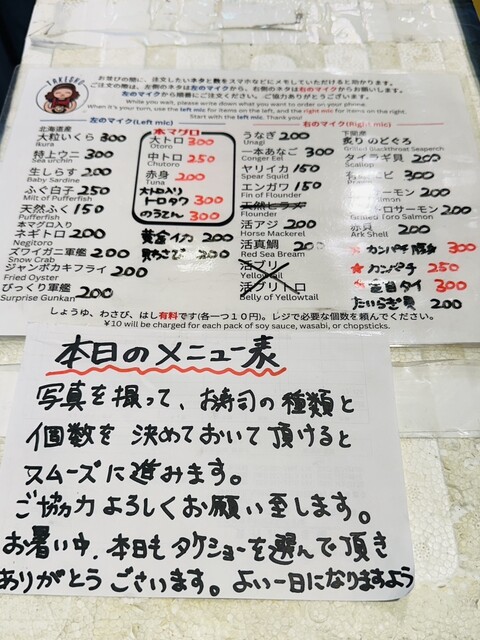 TAKESHO
お並びの間に、注文したいネタと数をスマホなどにメモしていただけると助かります。
ご注文の際は、左側のネタは左のマイクから、右側のネタは右のマイクからお願いします。
左のマイクから順番にご注文ください。ご協力ありがとうございます。
While you wait, please write down what you want to order on your phone.
When it's your turn, use the left mic for items on the left, and the right mic for items on the right.
Start with the left mic. Thank you!
左のマイク(Left mic)
北海道産
大粒いくら 300
Ikura
特上ウニ 300
Sea urchin
生しらす 200
Baby Sardine
ふぐ白子 250
Milt of Pufferfish
天然ふぐ 150
Pufferfish
本マグロ入り
ネギトロ 200
Negitoro
ズワイガニ軍艦 200
Snow Crab
ジャンボカキフライ
Fried Oyster 200
びっくり軍艦 200
Surprise Gunkan
本マグロ
大トロ 300
Otoro
中トロ 250
Chutoro
赤身 200
Tuna
大トロ入り
トロタク 300
のうてん 300
黄金イカ 200
200
右のマイク(Right mic)
うなぎ 200
Unagi
一本あなご 300
Conger Eel
ヤリイカ 150
Spear Squid
エンガワ 150
Fin of Flounder
天然ヒラメ
Flounder
活アジ 200
Horse Mackerel
活真鯛 200
Red Sea Bream
活ブリ
Yellowtail
活ブリトロ
Belly of Yellowtail
下関産
炙りのどぐろ
Grilled Blackthroat Seaperch
タイラギ貝 200
Scallop
200
サーモン 200
Salmon
サーモン 200
Grilled Toro Salmon
赤貝 200
Ark Shell
★カンパチ腹身 300
★カンパチ 250
★金目タイ 300
たいらぎ貝 200
しょうゆ、わさび、はし有料です(各一つ10円)。レジで必要な個数を頼んでください。
¥10 will be charged for each pack of soy sauce, wasabi, or chopsticks.
本日のメニュー表
写真を撮って、お寿司の種類と
個数を決めておいて頂けると
スムーズに進みます。
ご協力よろしくお願い致します。
お暑い中、本日もタケショーを選んで頂き
ありがとうございます。よい一日になりますよう